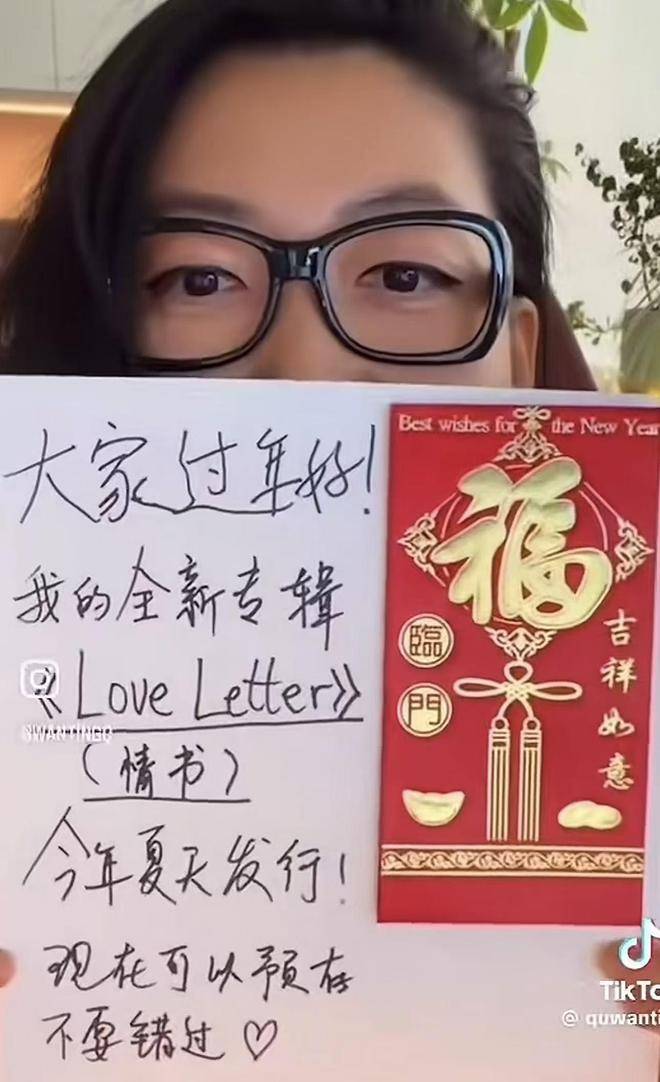 大家过年好!
我的全新专辑
《Love Letter》
(情书)
今年夏天发行!
现在可以预存
不要错过♡
Best wishes for the New Year
福
臨
門
吉祥如意
@WANTINGQ
TikTo
@quwanti